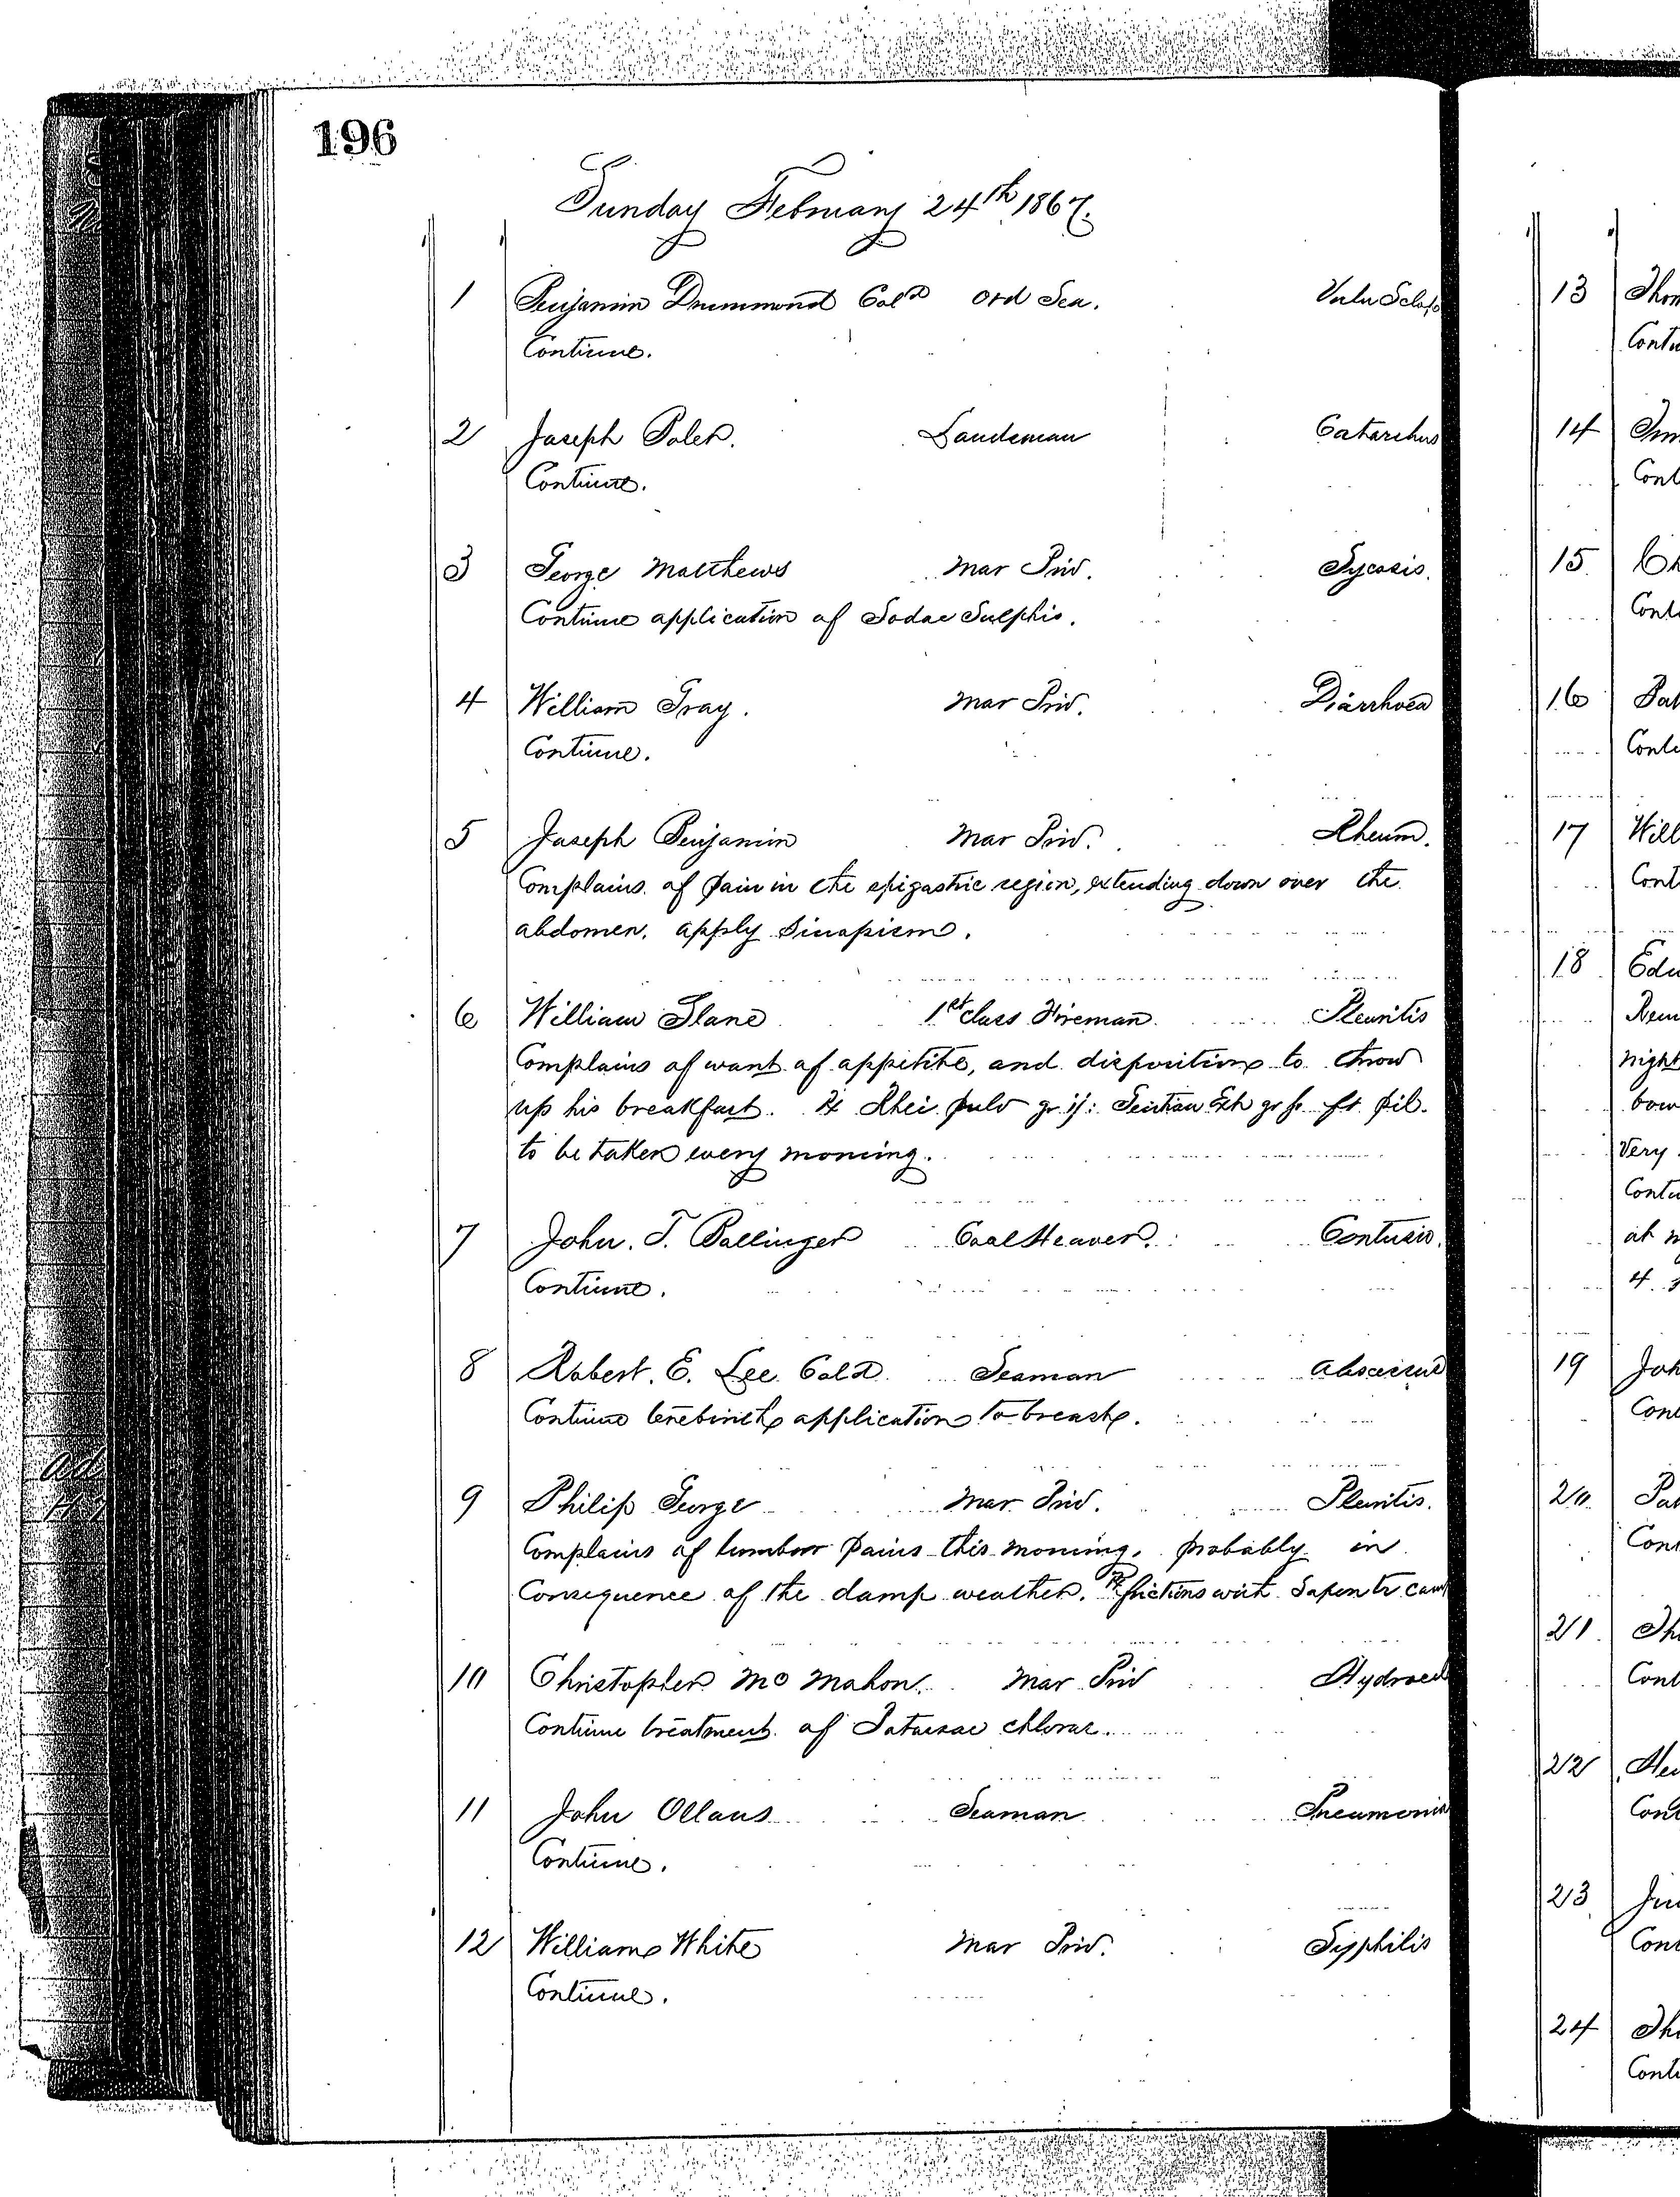 196
Sunday February 24th 1867.
1 Benjamin Drummond Cold Ord Sea. Vuln Sclop
Continue.
2 Joseph Landsman Catarrhus
Continue.
3 George Matthews Mar Priv. Sycosis.
Continue application of Sodae Sulphis.
4 William Gray. Mar Priv. Diarrhoea
Continue.
5 Joseph Benjamin Mar Priv. Rheum.
Complains of pain in the epigastric region, extending down over the
abdomen. apply Sinapism.
6 William Slane 1st Class Fireman Pleuritis
Complains of want of appetite, and disposition to throw
up his breakfast. ℞ Rhei pulv gr ij: Gentian Ext gr ft pil.
to be taken every morning.
7 John. T. Ballinger Coal Heaver. Contusio.
Continue.
8 Robert. E. Lee Cold Seaman Abscessus
Continue terebinth application to breast.
9 Philip George Mar Priv. Pleuritis.
Complains of lumbar pains this morning, probably in
Consequence of the damp weather. ℞ frictions with Sapon tr cam
10 Christopher McMahon. Mar Priv Hydrocel
Continue treatment of Potassae chlorat.
11 John Ollaus Seaman Pneumonia
Continue.
12 William White Mar Priv. Syphilis
Continue.
13
14
15
16
17
18
19
20
21
22
23
24